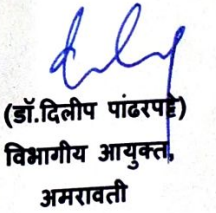 (डॉ.दिलीप पांढरपट्टे)
विभागीय आयुक्त,
अमरावती